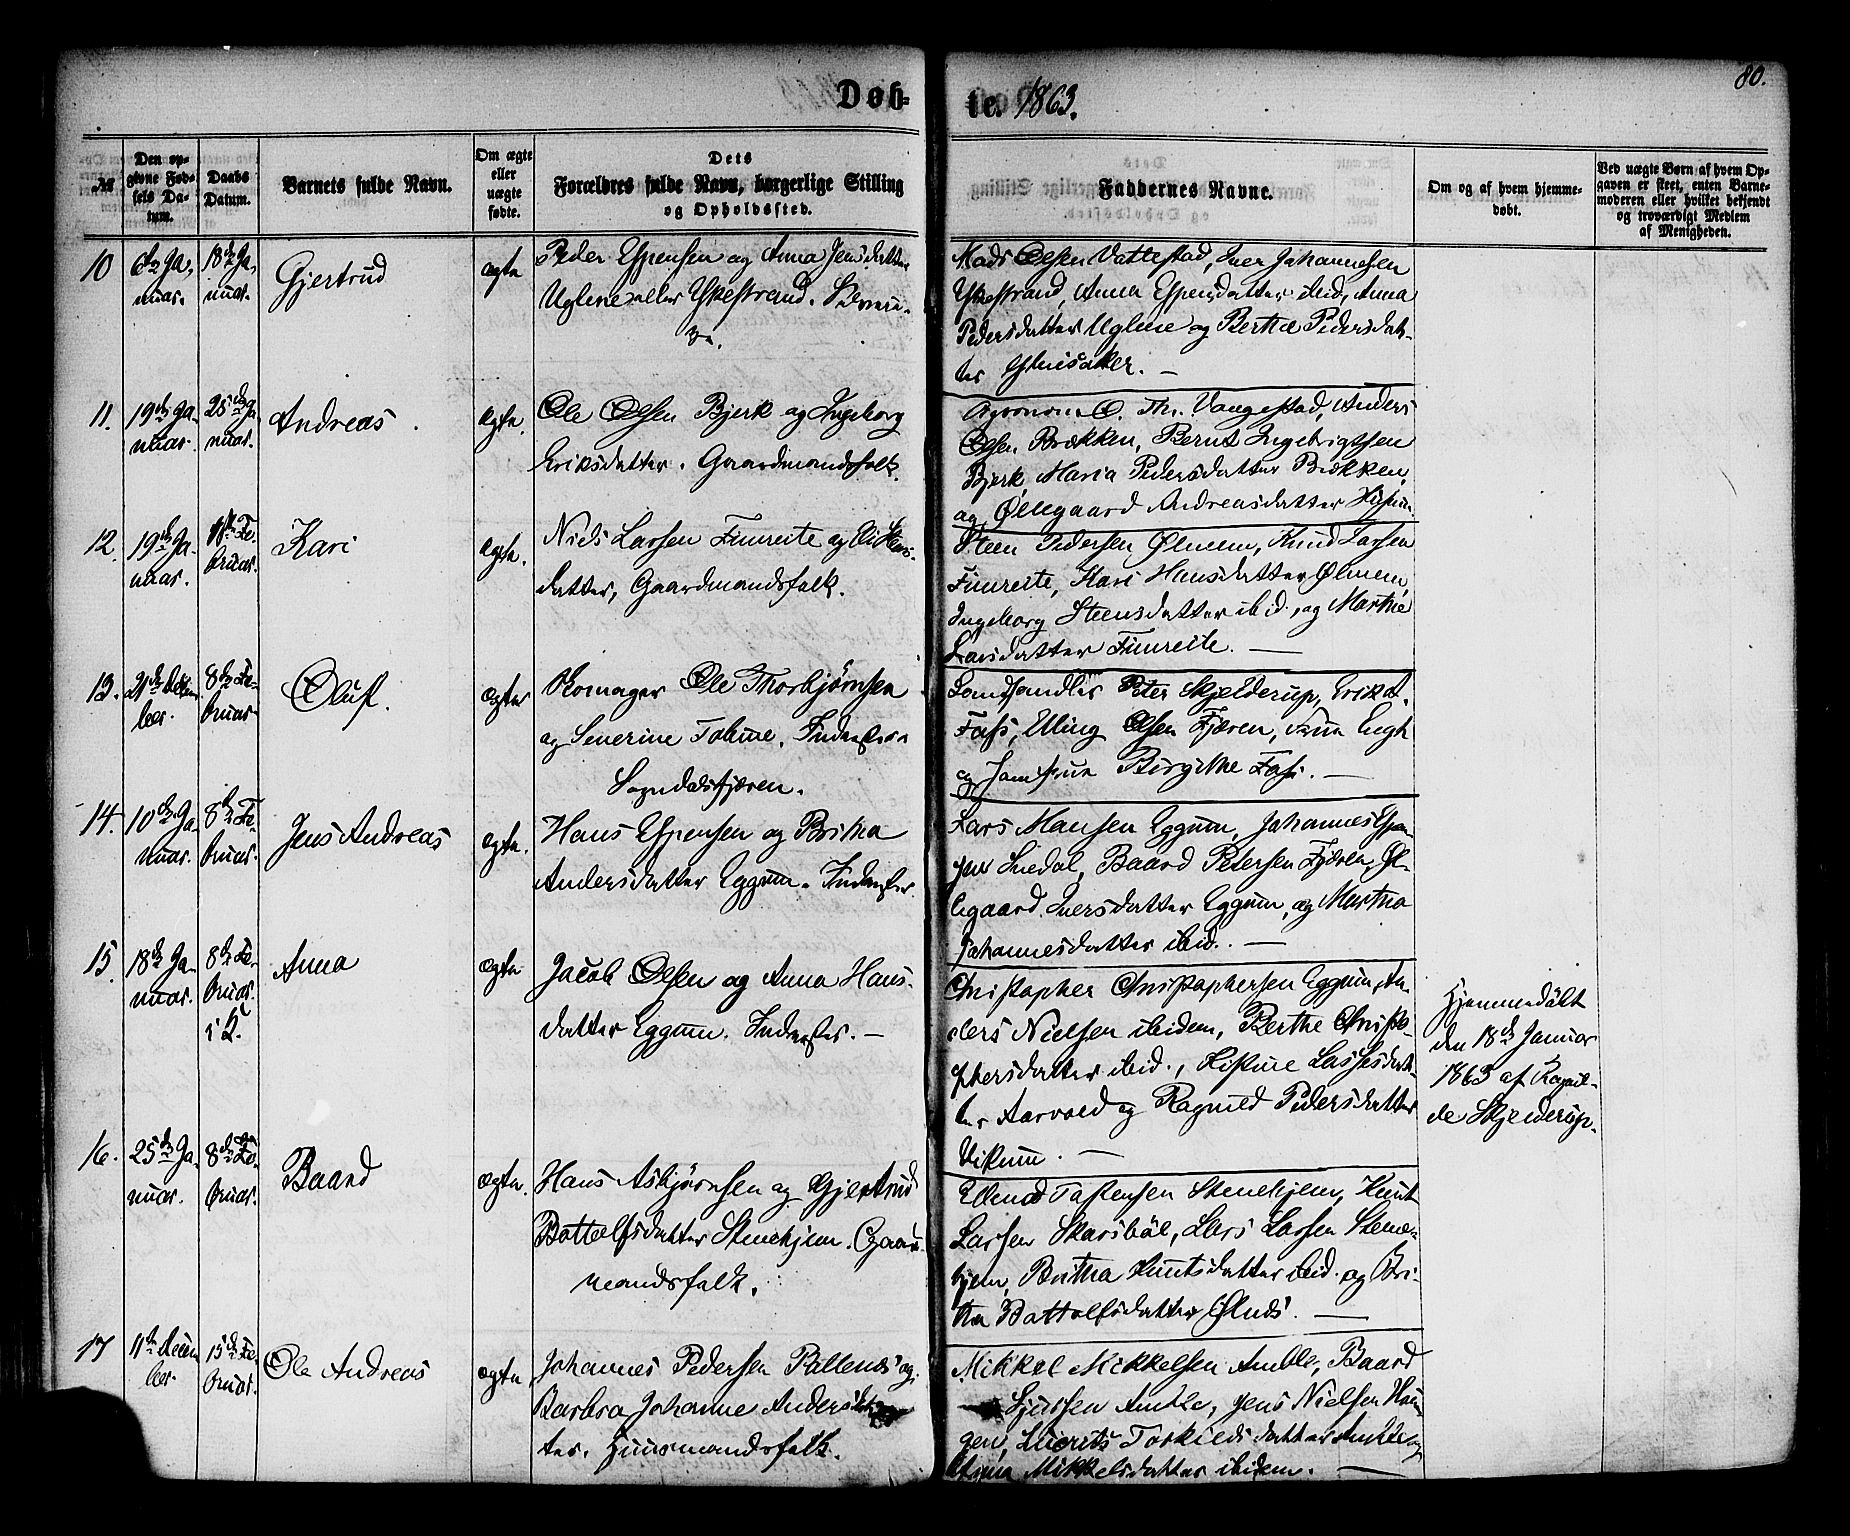 80.
Døb-
te. 1863.
№
Den op-
givne Fød-
sels Da-
tum.
Daabs
Datum.
Barnets fulde Navn.
Om ægte
eller
uægte
fødte.
Dets
Forældres fulde Navn, borgerlige Stilling
og Opholdssted.
Faddernes Navne.
Om og af hvem hjemme-
døbt.
Ved uægte Børn af hvem Op-
gaven er skeet, enten Barne-
moderen eller hvilket bekjendt
og troværdigt Medlem
af Menigheden.
10
6te Ja-
nuar.
18de Ja-
nuar.
Gjertrud
ægte
Peder Espensen og Anna Jensdatter
Uglene eller Ykestrand.
Mads Olsen Vattestad, Iver Johannesen
Ykestrand, Anna Espensdatter ibid, Anna
Pedersdatter Uglene og Berthe Pedersdat-
ter
11.
19de Ja-
nuar.
25de Ja-
nuar.
Andreas
ægte.
Ole Olsen Bjerk og Ingeborg
Eriksdatter. Gaardmandsfolk.
Agronom O. Th. Vangestad, Anders
Olsen Brækken, Bernt Ingebrigtsen
Bjerk, Maria Pedersdatter Brækken,
og Øllegaard Andreasdatter
12.
19de Ja-
nuar.
Fe-
bruar.
Kari
ægte.
Niels Larsen Fimreite og
datter, Gaardmandsfolk.
Steen Pedersen Ølmem, Knud Larsen
Fimreite, Kari Hansdatter Ølmem,
Ingeborg Steensdatter ibid., og Marthe
Larsdatter Fimreite. —
13.
21de Decem-
ber.
8de Fe-
bruar.
Oluf.
ægte
Skomager Ole Thorbjørnsen
og Severine Tobine. Inderster
Sogndalsfjæren.
Landhandler Peter Skjelderup, Erik A.
Fass, Elling Olsen Fjæren, Frue Engh
og Jomfrue Birgithe Fass. —
14.
10de Ja-
nuar.
8de Fe-
bruar.
Jens Andreas
ægte.
Hans Espensen og Britha
Andersdatter Eggum. Inderster.
Lars Hansen Eggum, Johannes Espen-
sen Snedal, Baard Petersen Fjæren, Øl-
legaard Iversdatter Eggum, og Martha
Johannesdatter ibid. —
15.
18de Ja-
nuar.
8de Fe-
bruar.
i K.
Anna
ægte
Jacob Olsen og Anna Hans-
datter Eggum. Inderster. —
Christopher Christophersen Eggum, An-
ders Nielsen ibidem, Berthe Christo-
phersdatter ibid., Kistine Lassesdat-
ter Aarvold og Ragnild Pedersdatter
Vikum. —
Hjemmedøbt
den 18de Januar
1863 af Ragnil-
de Skjelderup.
16.
25de Ja-
nuar.
8de Fe-
bruar.
Baard
ægte.
Hans Asbjørnsen og Gjertrud
Bottolfsdatter Stenehjem. Gaard-
mandsfolk.
Ellend Tostensen Stenehjem, Knut
Larsen Skarsbøl, Lars Larsen Stene-
hjem, Britha Knutsdatter ibid. og Bri-
tha Bottolfsdatter Ølnes. —
17
11te Decem-
ber.
15de Fe-
bruar.
Ole Andreas
ægte
Johannes Pedersen Pallenes og
Barbra Johanne Andersdat-
ter. Huusmandsfolk.
Mikkel Mikkelsen Amble, Baard
Sjursen Amble, Jens Nielsen Hau-
gen, Torkildsdatter Amble og
Mikkelsdatter ibidem. —